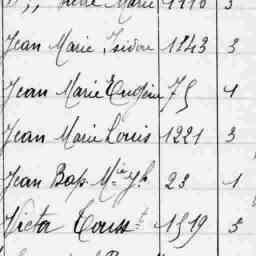 Marie 1110 3
Jean Marie Isidore 1843 3
Jean Marie Eugène 75 1
Jean Marie Louis 1221 3
Jean Bap. M.ie 23 1
Victor Touss.t 1519 3